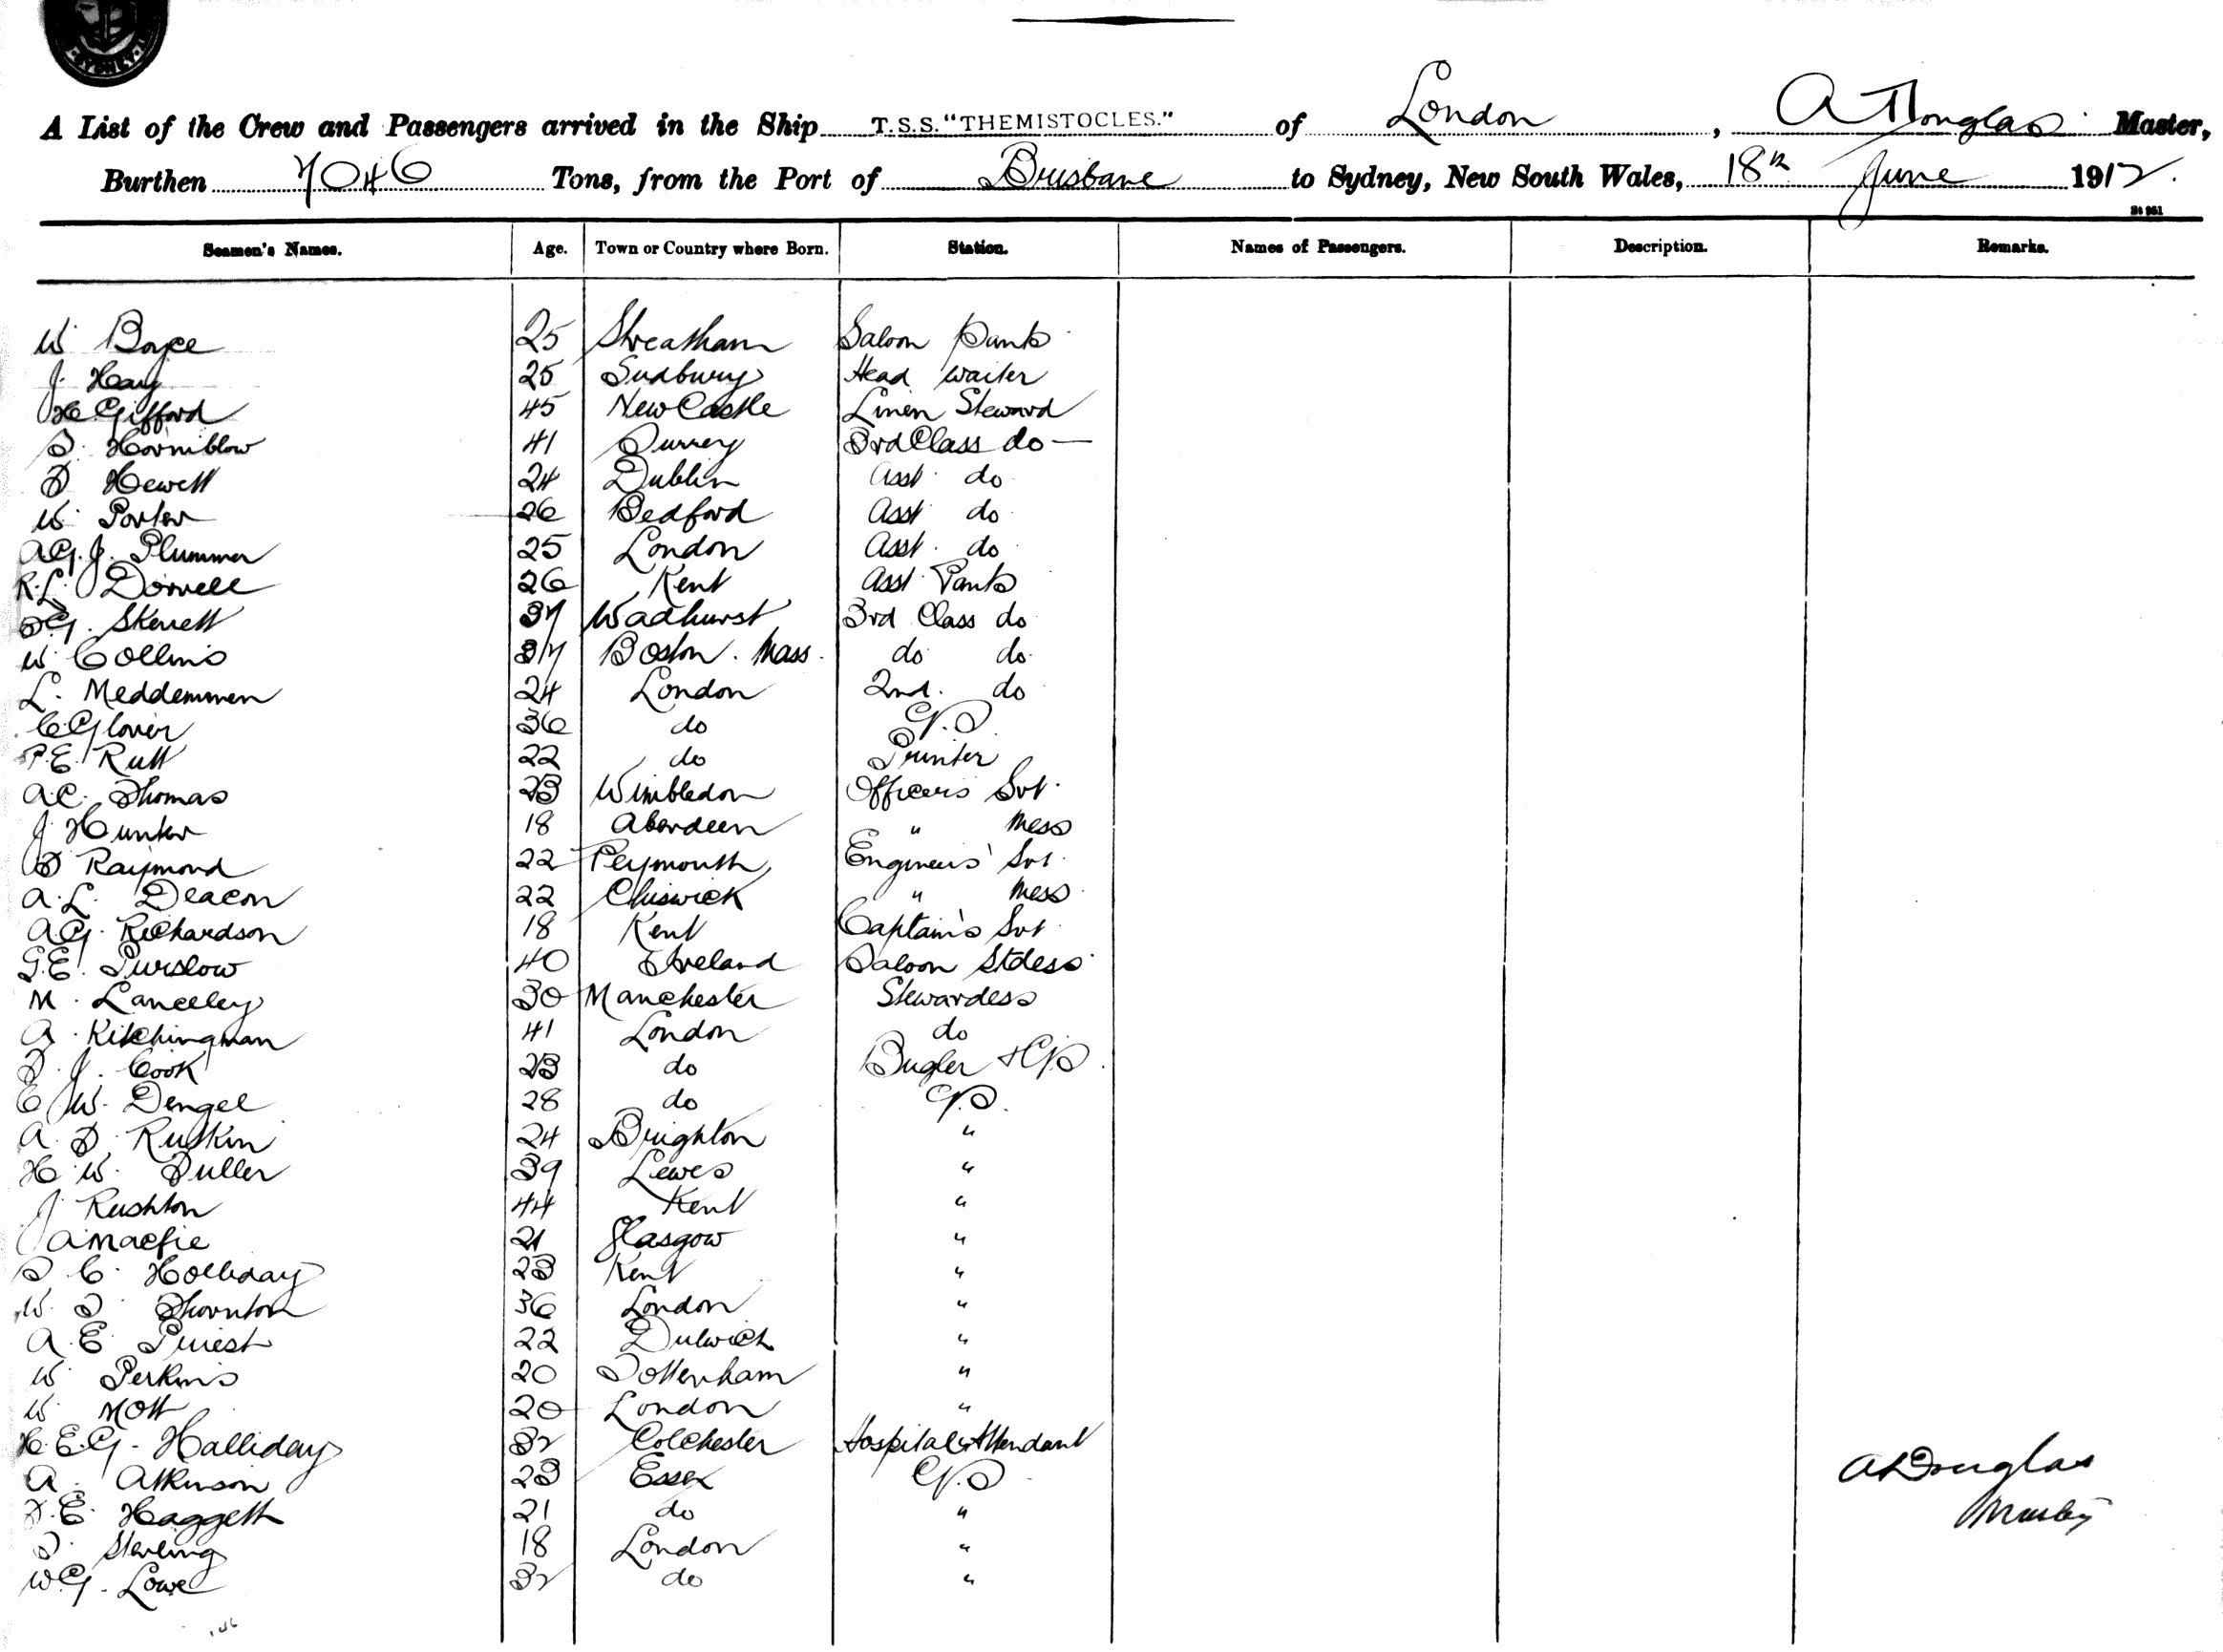 SYDNEY
A List of the Crew and Passengers arrived in the Ship T.S.S. "THEMISTOCLES." of London, A Douglas Master,
Burthen 7046 Tons, from the Port of Brisbane to Sydney, New South Wales, 18th June 1912.
St 951
Seamen's Names. Age. Town or Country where Born. Station. Names of Passengers. Description. Remarks.
W. Boyce 25 Streatham Saloon Pants
J. Hay 25 Sudbury Head Waiter
H. Gifford 45 New Castle Linen Steward
S. Horniblow 41 Surrey 3rd Class do —
F Hewett 24 Dublin Asst. do
W. Porter 26 Bedford Asst do
A.G.J. Plummer 25 London Asst. do
R.L. Dorvell 26 Kent Asst Pants
F.G. Skerrett 37 Wadhurst 3rd Class do
W. Collins 37 Boston. Mass. do do.
L. Meddemmen 24 London 2nd. do
C. Glover 36 do G.S.
P.E. Rutt 22 do Printer
A.C. Thomas 23 Wimbledon Officers Svt.
J Hunter 18 Aberdeen " Mess
F Raymond 22 Plymouth Engineers' Svt.
A.L. Deacon 22 Chiswick " Mess
A.G. Richardson 18 Kent Captain's Svt
G.E. Purslow 40 Ireland Saloon Stdess
M. Lanceley 30 Manchester Stewardess
A. Kitchingman 41 London do
F. J. Cook 23 do Bugler & G.S.
E W. Dengel 28 do G.S.
A. F. Ruskin 24 Brighton "
H. W. Fuller 39 Lewes "
J Rushton 44 Kent "
A Macfie 21 Glasgow "
S C. Holliday 23 Kent "
W. T. Thornton 36 London "
A. E. Priest 22 Dulwich "
W Perkins 20 Tottenham "
W. Mott 20 London "
H.E.G. Halliday 32 Colchester Hospital Attendant
A. Atkinson 23 Essex G.S. A Douglas
F.E. Haggett 21 do " Master
T. Sterling 18 London "
W.G. Lowe 32 do "